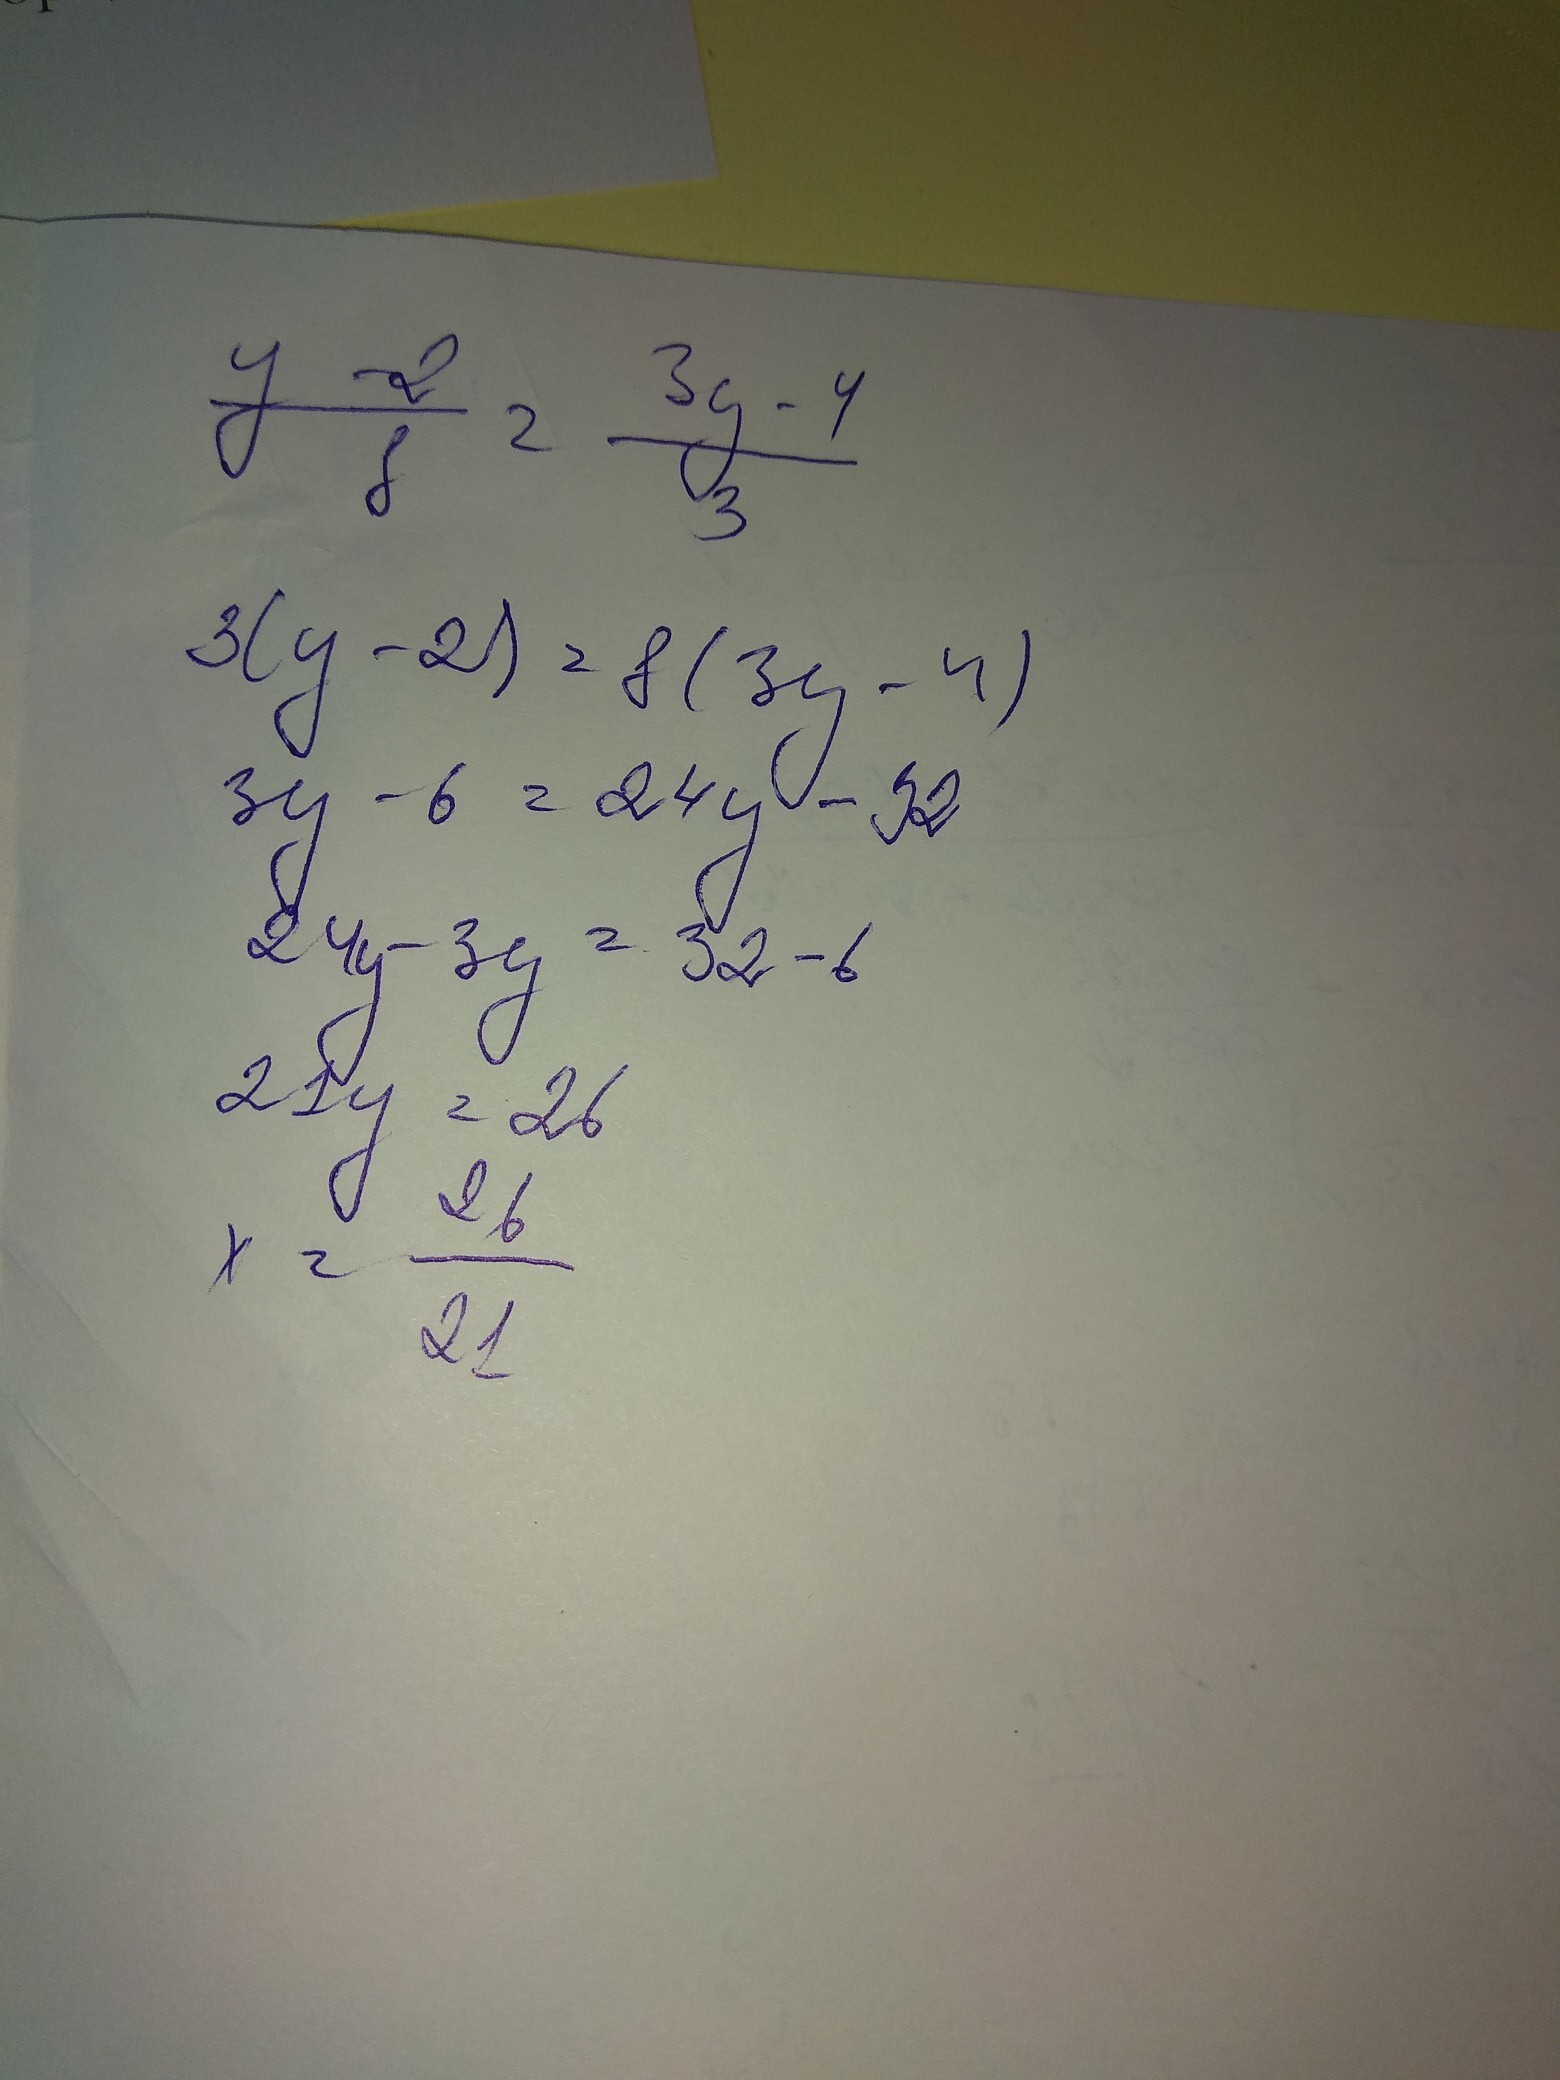 (y - 2)/8 = (3y - 4)/3
3(y - 2) = 8(3y - 4)
3y - 6 = 24y - 32
24y - 3y = 32 - 6
21y = 26
x = 26/21